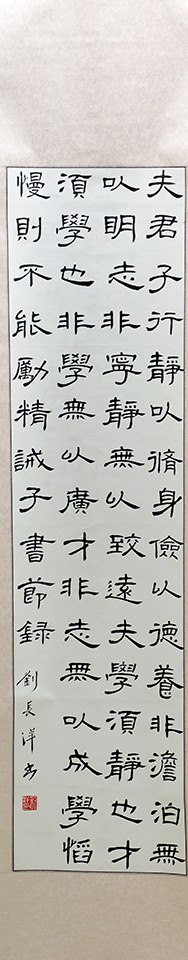 夫君子行靜以脩身儉以德養非澹泊無
以明志非寧靜無以致遠夫學須靜也才
須學也非學無以廣才非志無以成學慆
慢則不能勵精誡子書節録
劉長洋书